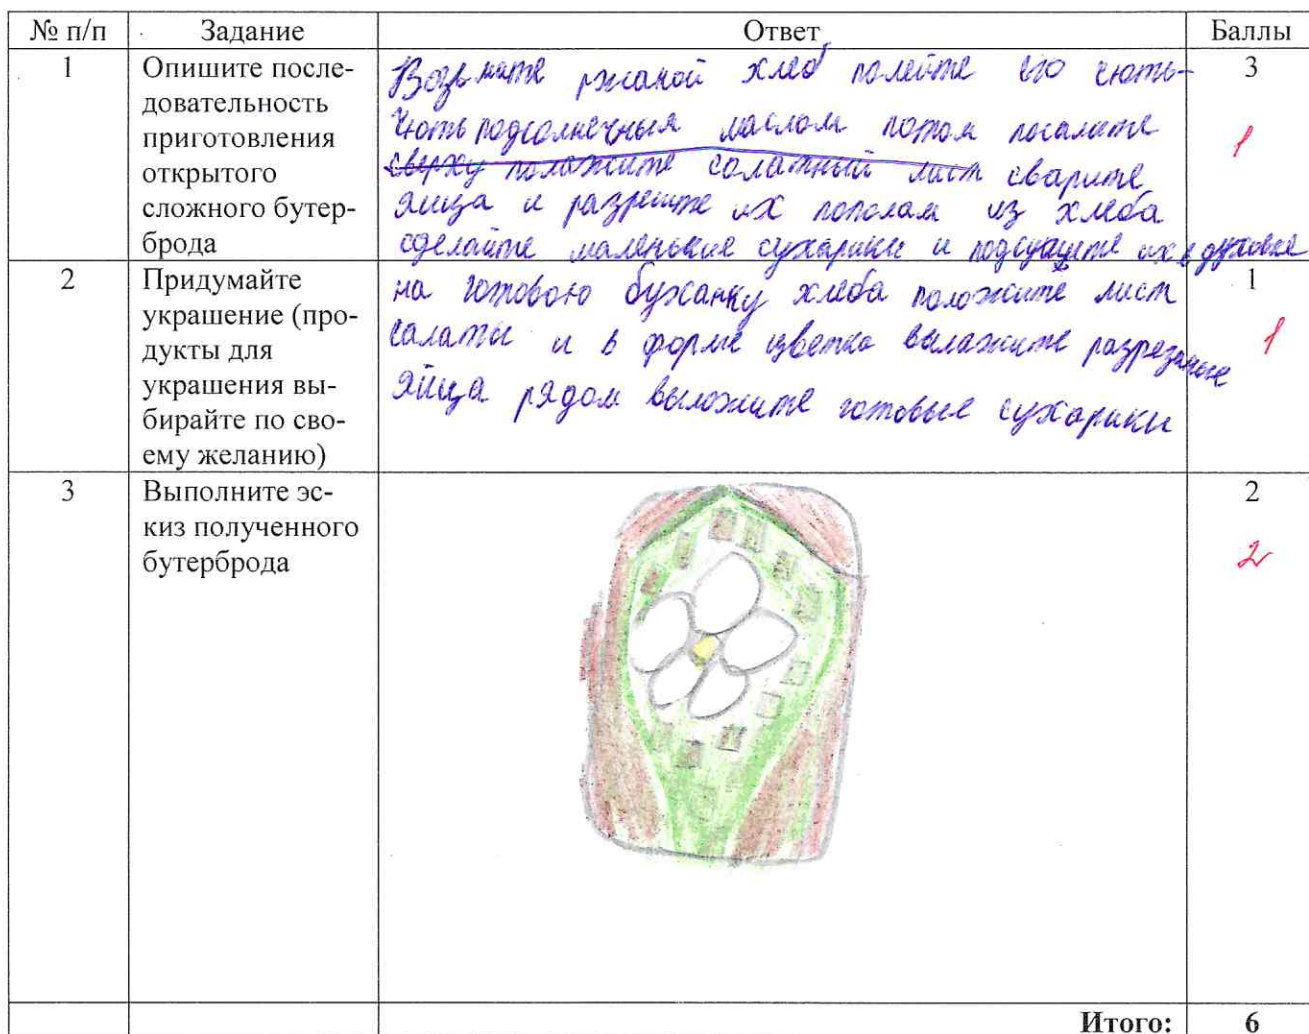 № п/п Задание Ответ Баллы
1 Опишите после-
довательность
приготовления
открытого
сложного бутер-
брода
Возьмите ржаной хлеб полейте его чють-
чють подсолнечныя маслом потом посалите
сверху положите салатный лист сварите
яица и разрешите их пополам из хлеба
сделайте маленькие сухарики и подсушите их в духовке
3
1
2 Придумайте
украшение (про-
дукты для
украшения вы-
бирайте по сво-
ему желанию)
на готовою буханку хлеба положите лист
салаты и в форме цветка вылажите разрезаные
яйца рядом выложите готовые сухарики
1
1
3 Выполните эс-
киз полученного
бутерброда
2
2
Итого: 6